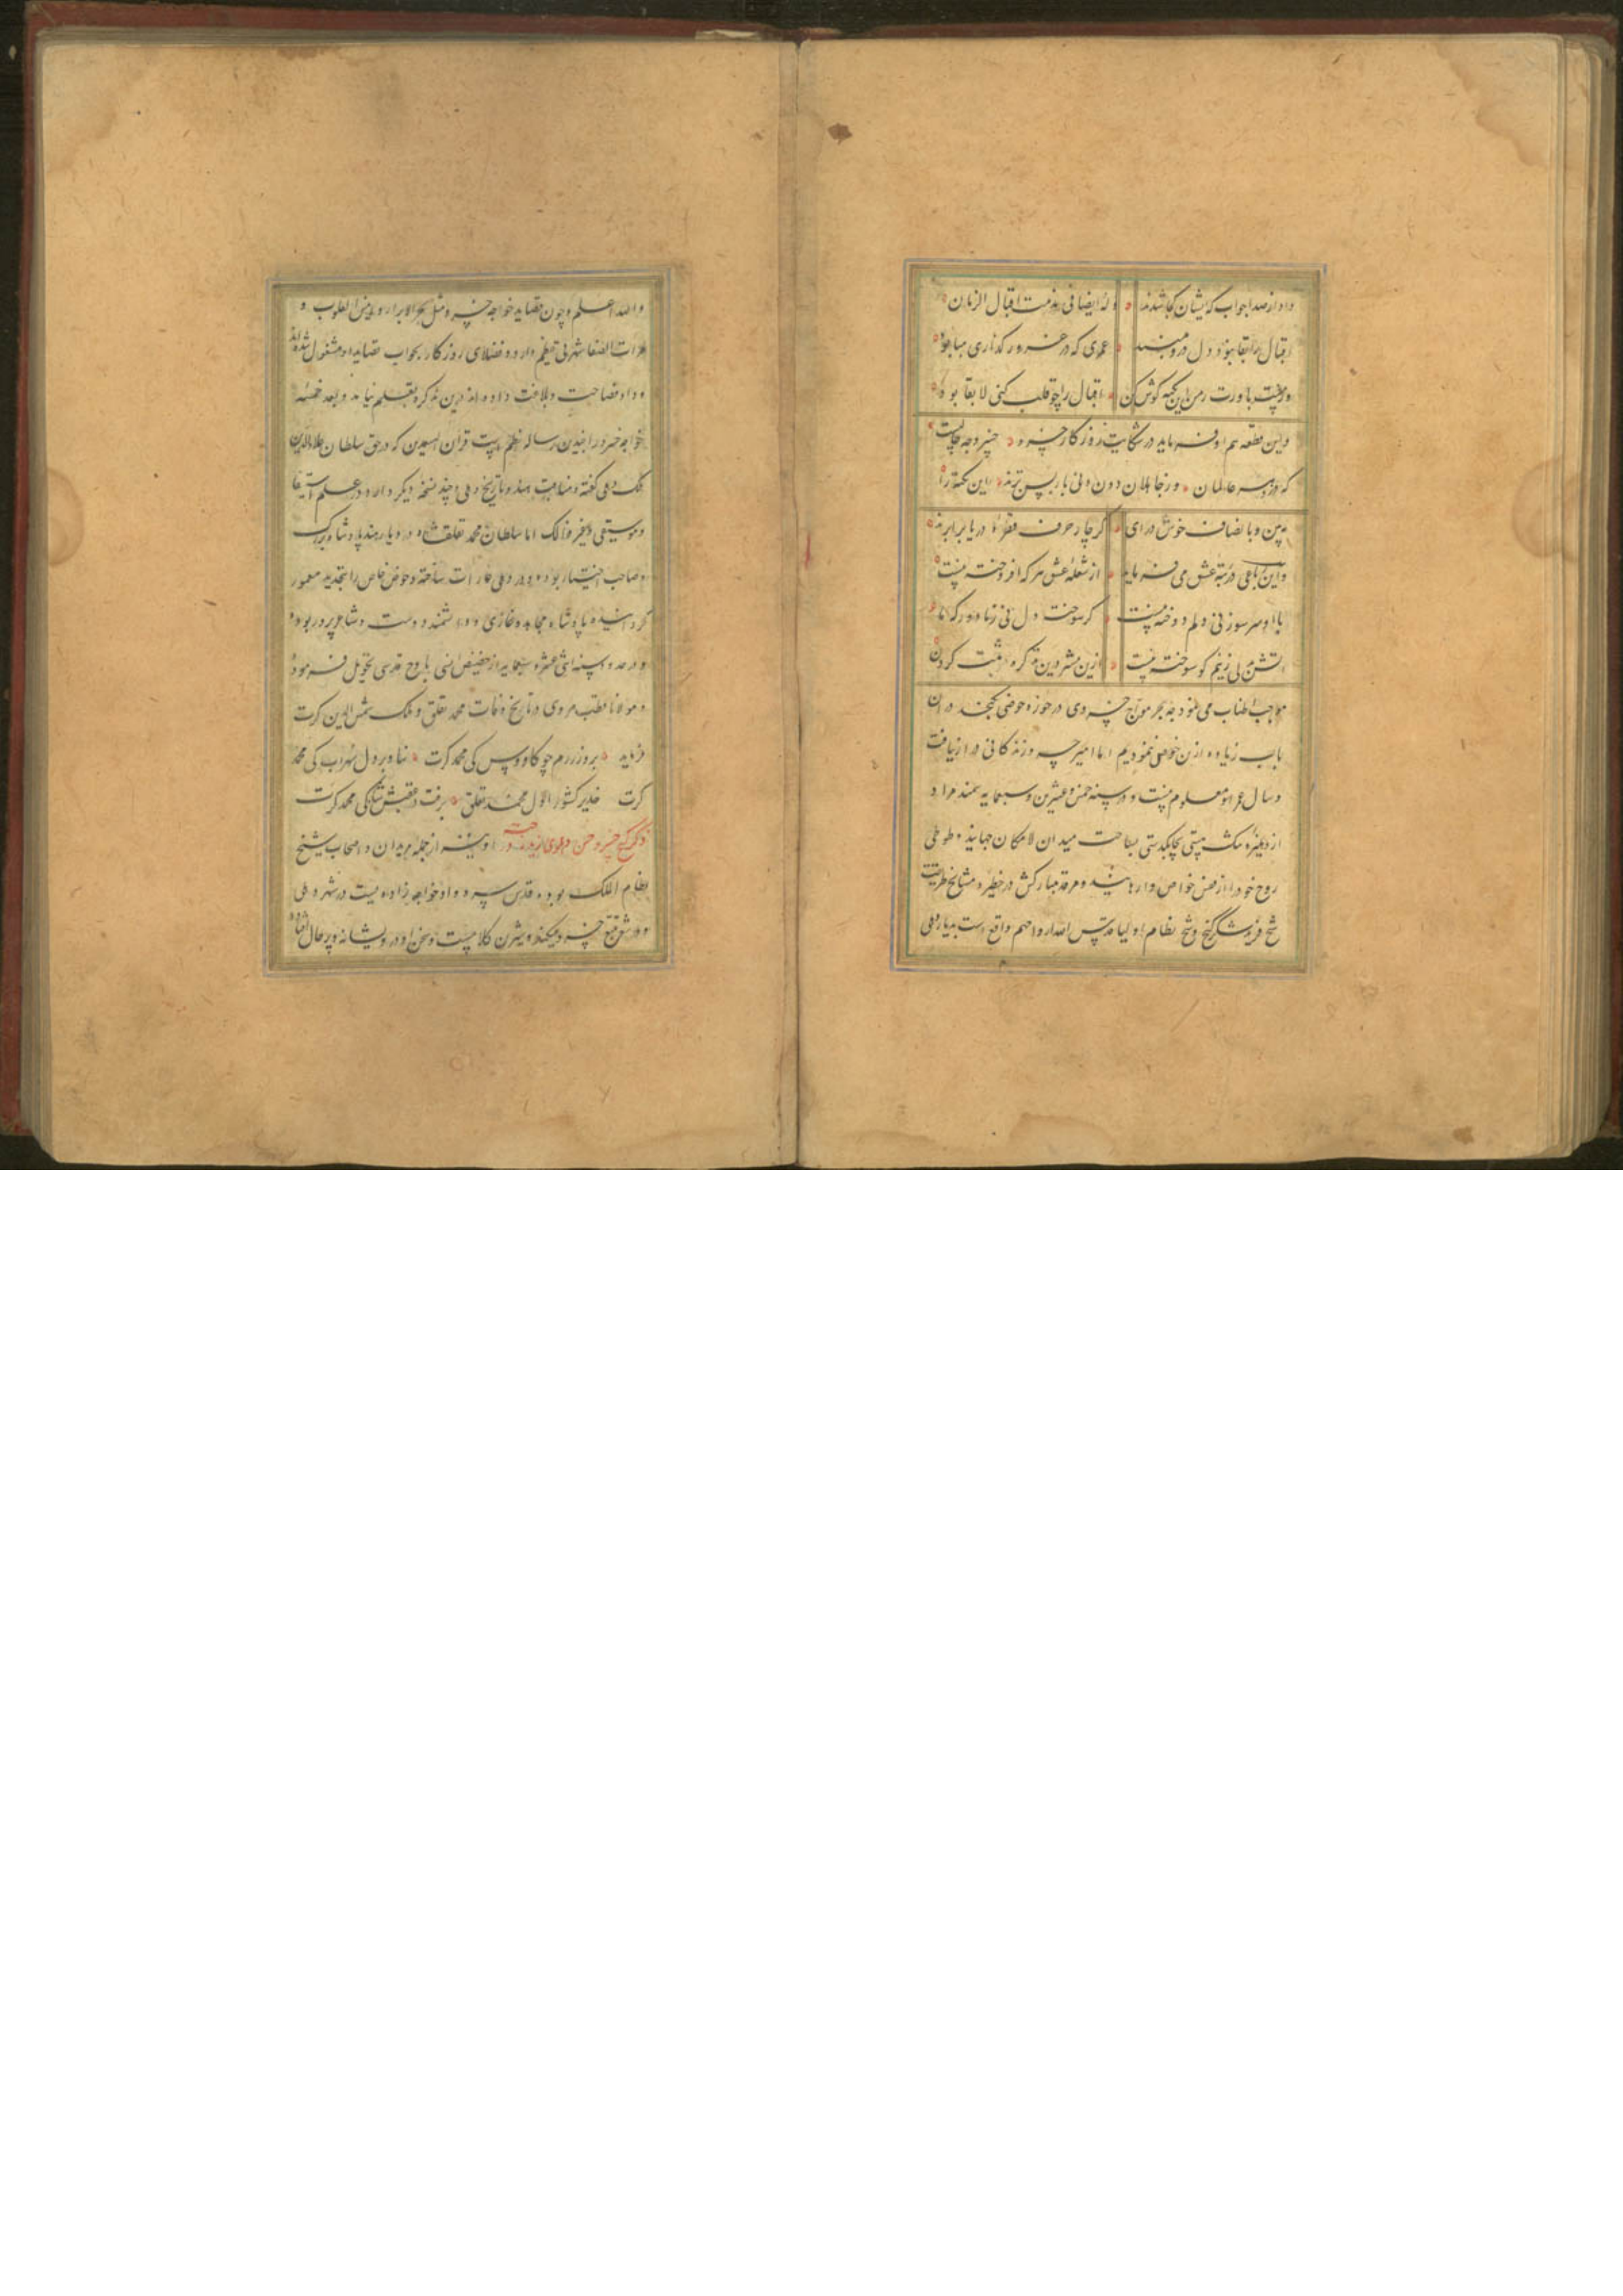 داد از صدا جواب که ایشان کجا شدند وله ایضا فی مذمت اقبال الزمان
اقبال را بقا نبود دل درو مبند عمری که در غرور گذاری هبا بود
ور نیست باورت ز من این نکته گوش کن اقبال را چو قلب کنی لا بقا بود
واین قطعه هم او فرماید در شکایت روزگار خسرو
که خسرو عالمان ور جاهلان دون دنی باز پس ترند این نکته را
ببین و با نصاف خوش درای گر چار حرف دریا برابرند
واین رباعی در مرتبه عشق می فرماید از شعله عشق هر که افروخته نیست
با او سر سوزنی دلم دوخته نیست گر سوخته دل نی ز ما دور که ما
آتش بدلی زنیم کو سوخته نیست ازین بیشتر درین تذکره ثبت کردن
موجب اطناب می نمود چه بحر مواج خسروی در حوزه حوضی نگنجد در آن
باب زیاده ازین خوض ننمودیم اما امیر خسرو زندگانی دراز یافت
وسال عمر او معلوم نیست و در سنه خمس وعشرین وسبعمایه سمند مراد
از دهلیز تنگ هستی بچابکدستی بساحت میدان لامکان جهانید وطوطی
روح خود را از قفس خواص وارهانید ومرقد مبارکش در خطیره مشایخ طریقت
شیخ فرید شکرگنج وشیخ نظام اولیا قدس الله ارواحهم واقع است بدیار دهلی
والله اعلم وچون قصاید خواجه خسرو مثل بحر الابرار وانیس القلوب و
مرآت الصفا شهرتی عظیم دارد وفضلای روزگار بجواب قصاید او مشغول شده اند
وداد فصاحت وبلاغت داده اند درین تذکره بقلم نیامد وبعد خمسه
خواجه خسرو را چندین رساله نظم هست قران السعدین که در حق سلطان علاءالدین
ملک دهلی گفته ومناقب هند وتاریخ دهلی وچند نسخه دیگر دارد در علم استیفا
وموسیقی وغیر ذالک اما سلطان محمد تغلقشاه در دیار هند پادشاه بزرگ
وصاحب اختیار بود ودر دهلی عمارات ساخته وحوض خاص را بتجدید معمور
گردانیده پادشاه مجاهد وغازی ودانشمند دوست وشاعر پرور بوده
ودر حدود سنه اثنی عشر وسبعمایه از حضیض انسی باوج قدسی تحویل فرمود
ومولانا قطب مروی در تاریخ وفات محمد تغلق وملک شمس الدین کرت
فرماید بروز رزم چو کاووس کی محمد کرت نیاورد دل سهراب کی محمد
کرت خدیو کشور اول محمد تغلق برفت در عقبش محمد کرت
ذکر خسرو حسن دهلوی او نیز از جمله مریدان واصحاب شیخ
نظام الملک بوده قدس سره واو خواجه زاده ایست در شهر دهلی
ودر شعر تتبع خسرو میکند وشیرین کلامیست وسخن او درویشانه وپر حال افتاده